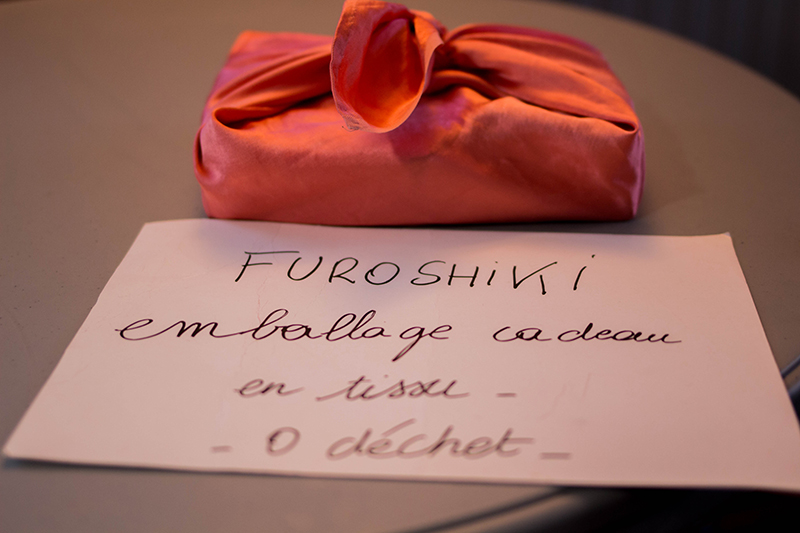 FUROSHiKi
emballage cadeau
en tissu -
- O déchet -